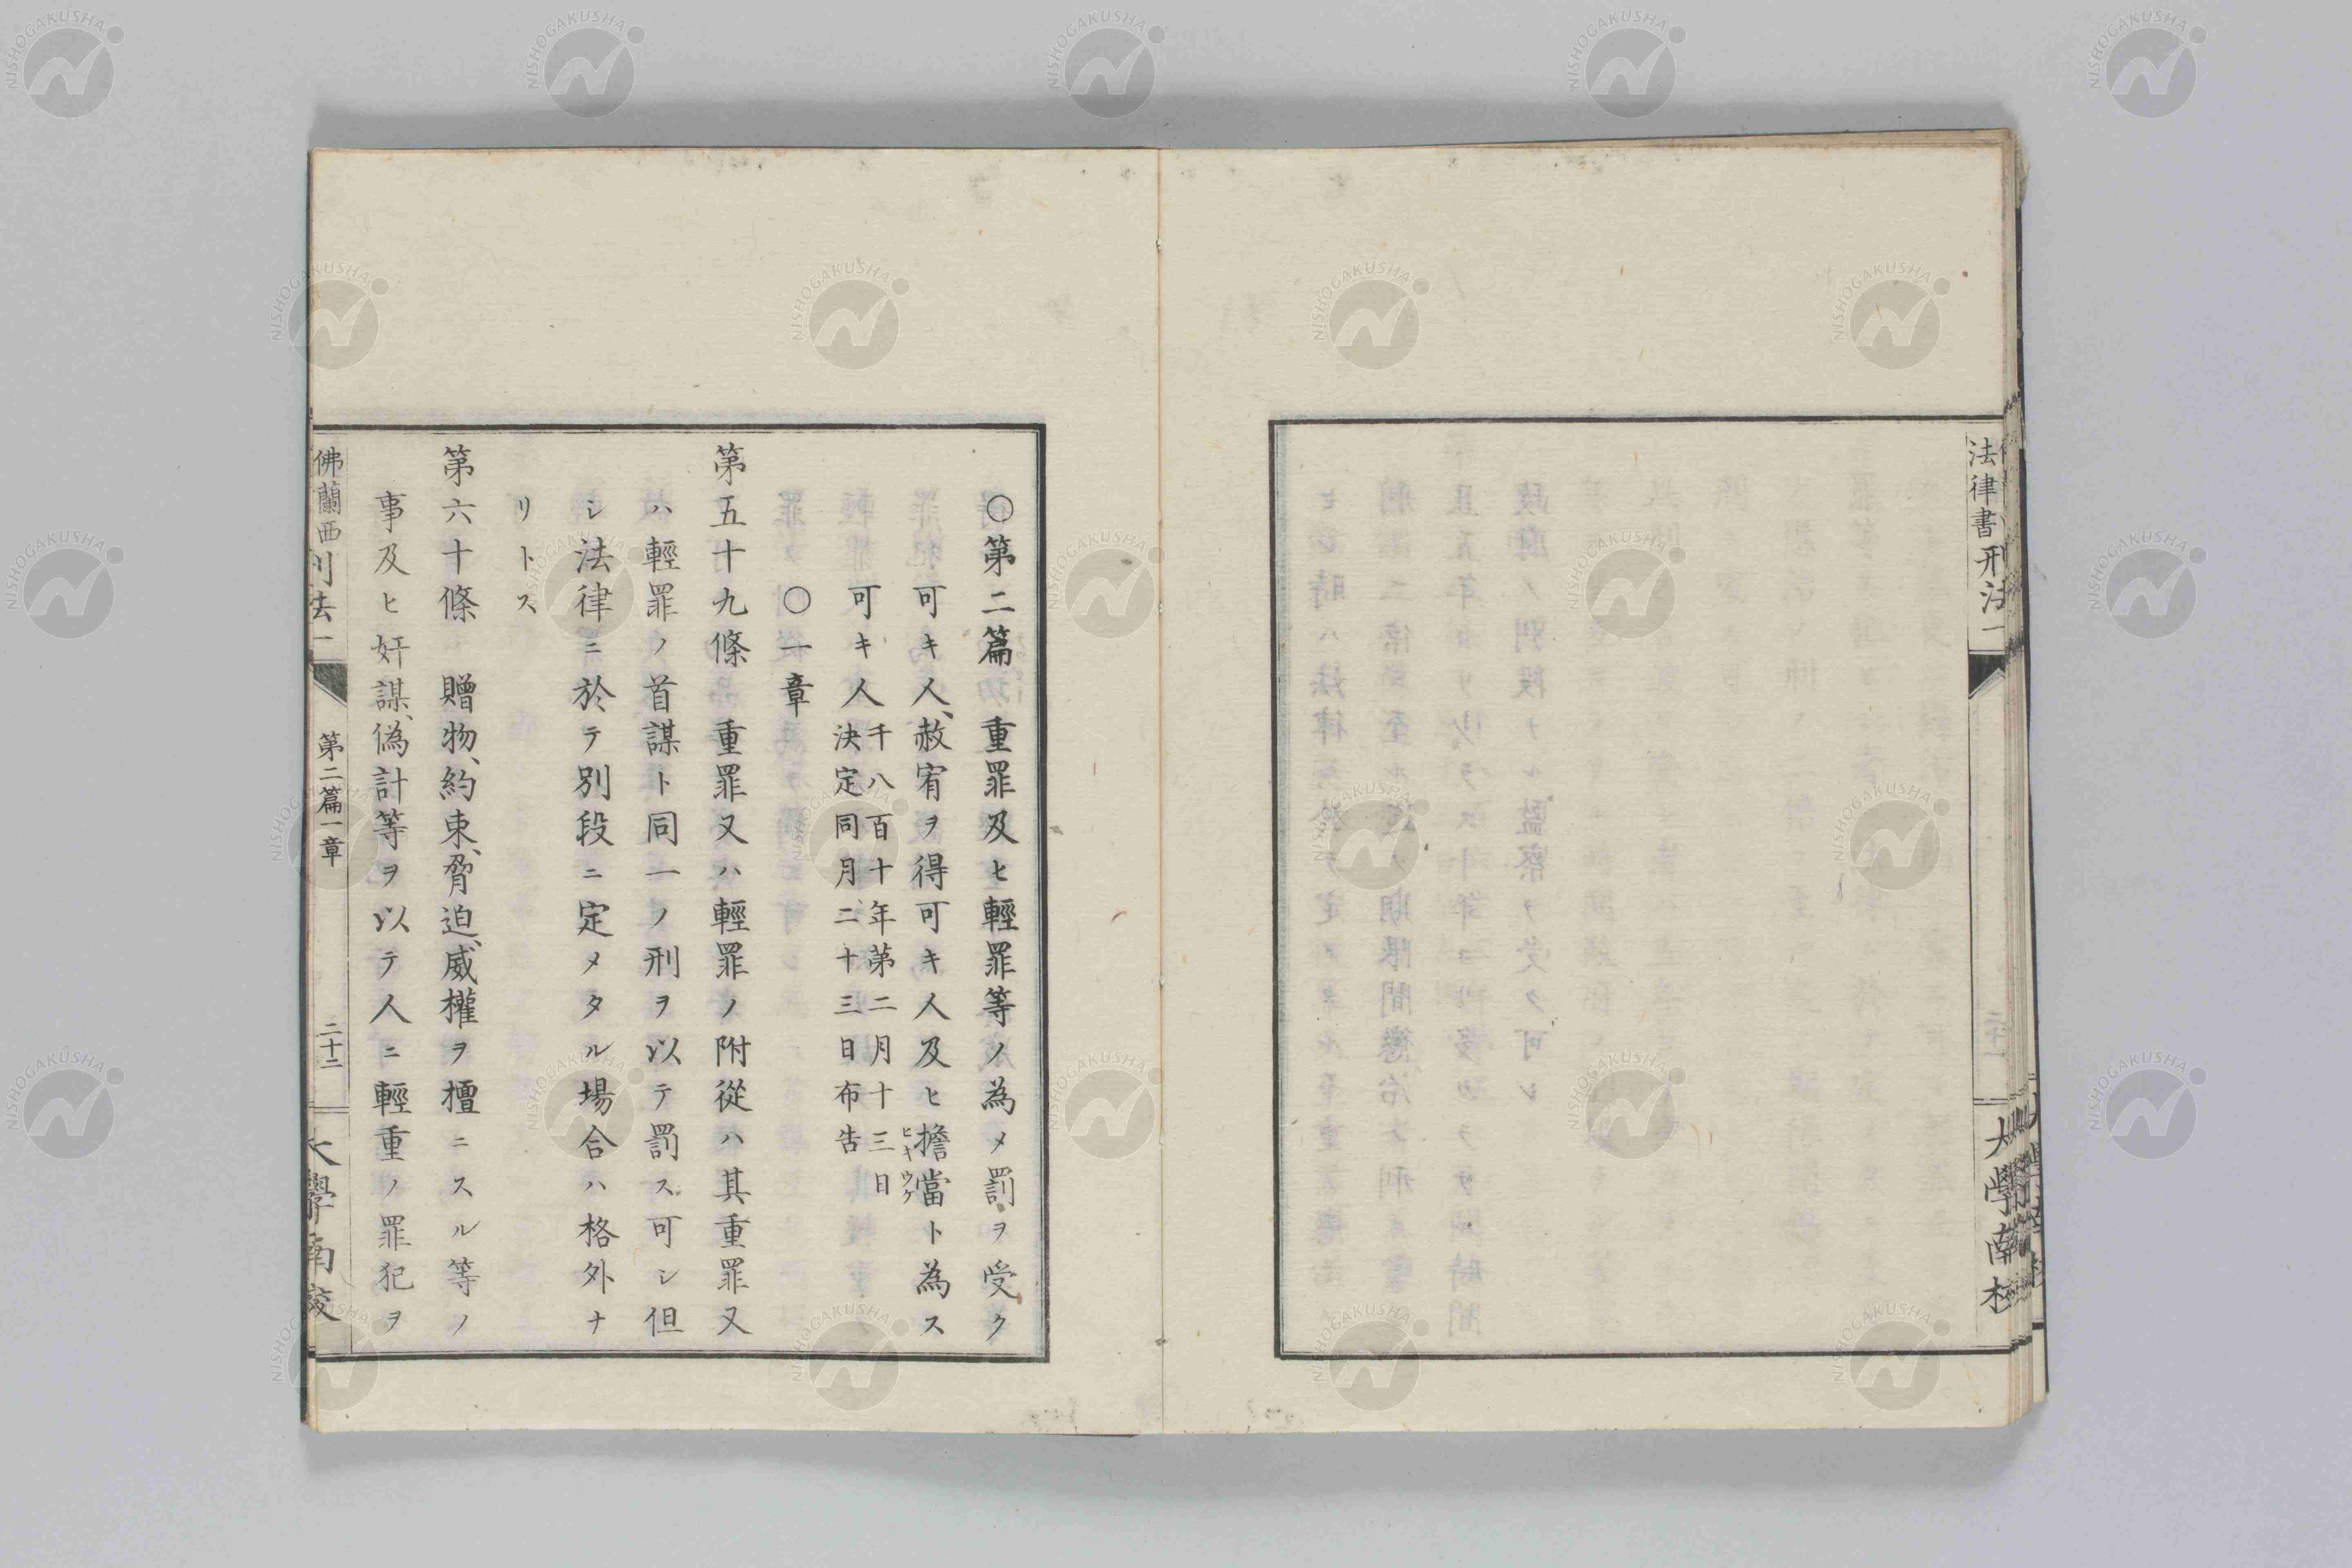 法律書刑法一
大學南校
○第二篇 重罪及ヒ輕罪等ノ為メ罰ヲ受ク
可キ人、赦宥ヲ得可キ人及ヒ擔當ト為ス
ヒキウケ
可キ人
千八百十年第二月十三日
決定同月二十三日布告
○一章
第五十九條 重罪又ハ輕罪ノ附從ハ其重罪又
ハ輕罪ノ首謀ト同一ノ刑ヲ以テ罰ス可シ但
シ法律ニ於テ別段ニ定メタル場合ハ格外ナ
リトス
第六十條 贈物、約束、脅迫、威權ヲ擅ニスル等ノ
事及ヒ奸謀、偽計等ヲ以テ人ニ輕重ノ罪犯ヲ
佛蘭西刑法一
第二篇一章
二十二
大學南校
NISHOGAKUSHA